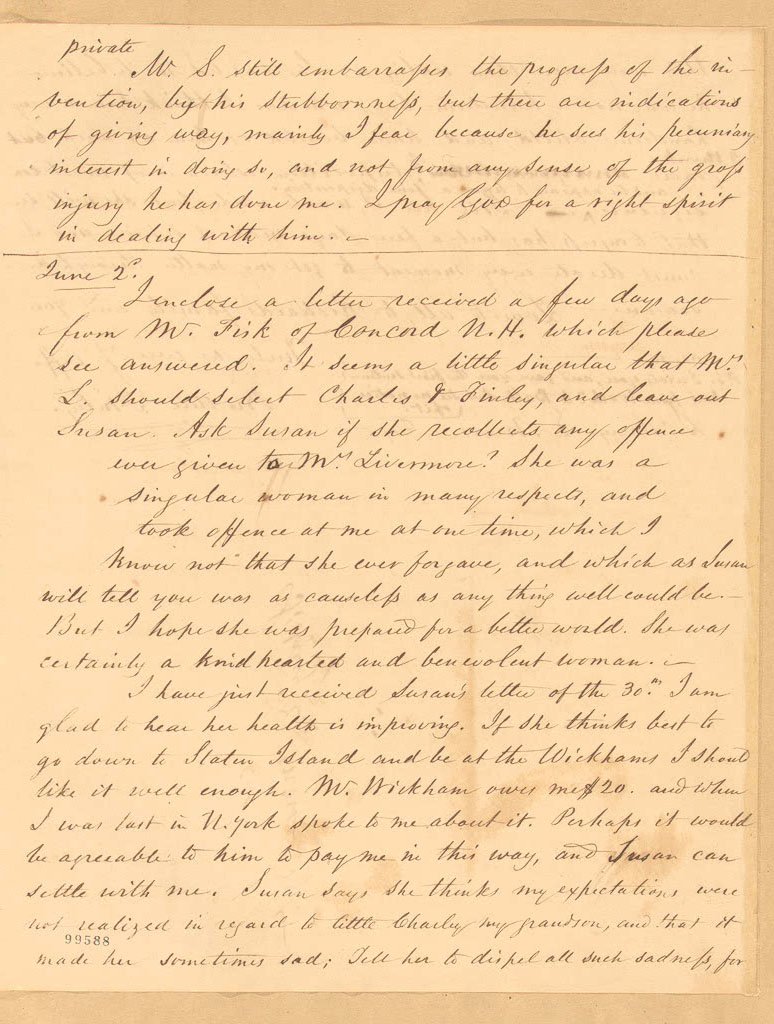 private
Mr. S. still embarrasses the progress of the in-
vention, by his stubbornness, but there are indications
of giving way, mainly I fear because he sees his pecuniary
interest in doing so, and not from any sense of the gross
injury he has done me. I pray God for a right spirit
in dealing with him. —
June 2d.
I enclose a letter received a few days ago
from Mr. Fisk of Concord N.H. which please
see answered. It seems a little singular that Mrs
L. should select Charles & Finley, and leave out
Susan. Ask Susan if she recollects any offence
ever given to Mrs Livermore? She was a
singular woman in many respects, and
took offence at me at one time, which I
know not that she ever forgave, and which as Susan
will tell you was as causeless as any thing well could be. —
But I hope she was prepared for a better world. She was
certainly a kind hearted and benevolent woman. —
I have just received Susan's letter of the 30th. I am
glad to hear her health is improving. If she thinks best to
go down to Staten Island and be at the Wickhams I should
like it well enough. Mr. Wickham owes me $20. and when
I was last in N. York spoke to me about it. Perhaps it would
be agreeable to him to pay me in this way, and Susan can
settle with me. Susan says she thinks my expectations were
not realized in regard to little Charley my grandson, and that it
99588
made her sometimes sad; Tell her to dispel all such sadness, for